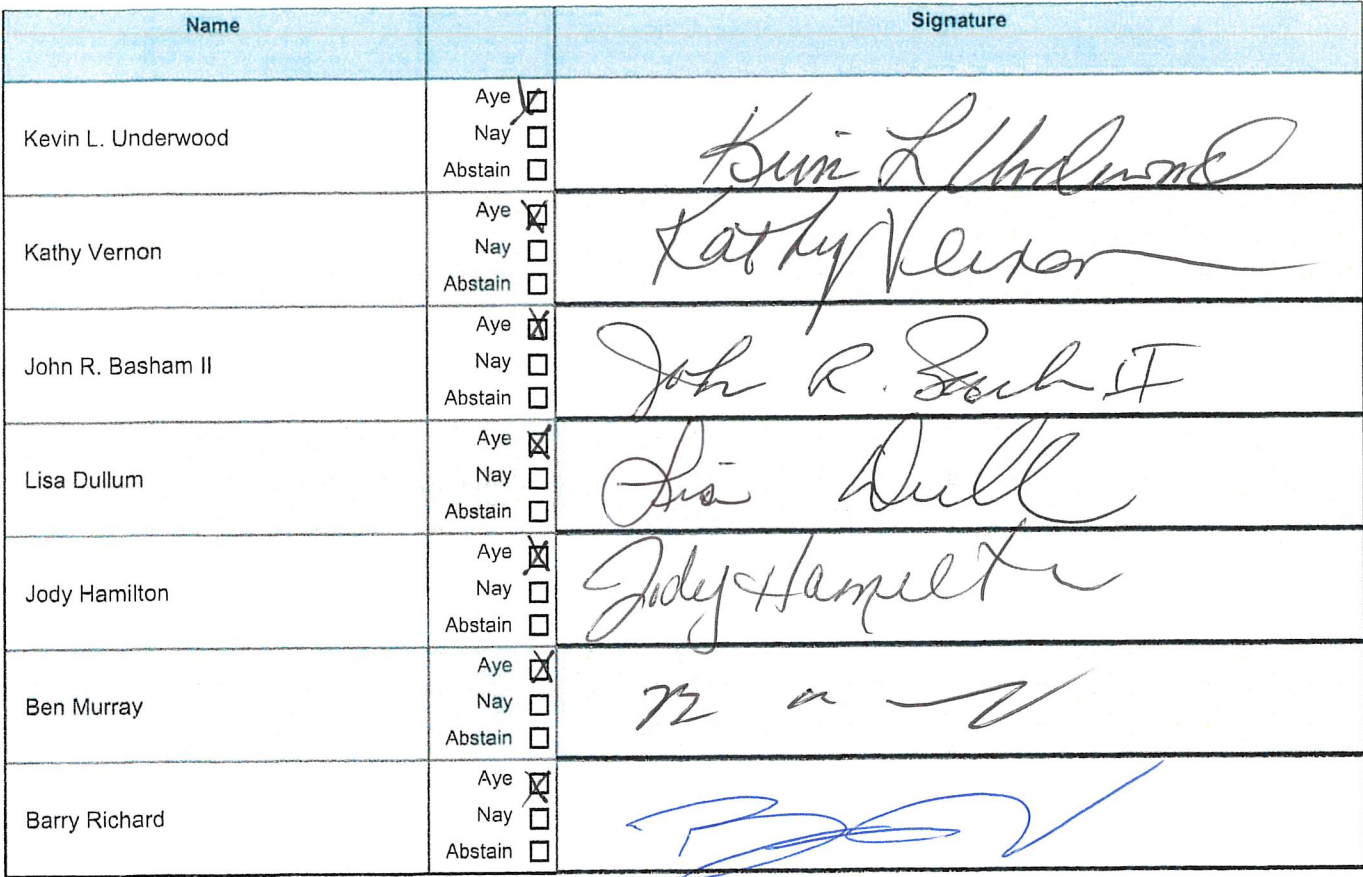 Name Signature
Aye
Kevin L. Underwood Nay
Abstain
Kathy Vernon
Aye
Nay
Abstain
Kathy Vernon
John R. Basham II
Aye
Nay
Abstain
John R.
II
Lisa Dullum
Aye
Nay
Abstain
Lisa
Jody Hamilton
Aye
Nay
Abstain
Jody Hamilton
Ben Murray
Aye
Nay
Abstain
Barry Richard
Aye
Nay
Abstain